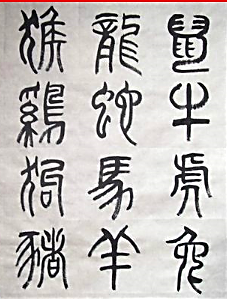 鼠牛虎兔
龍蛇馬羊
猴鷄狗豬